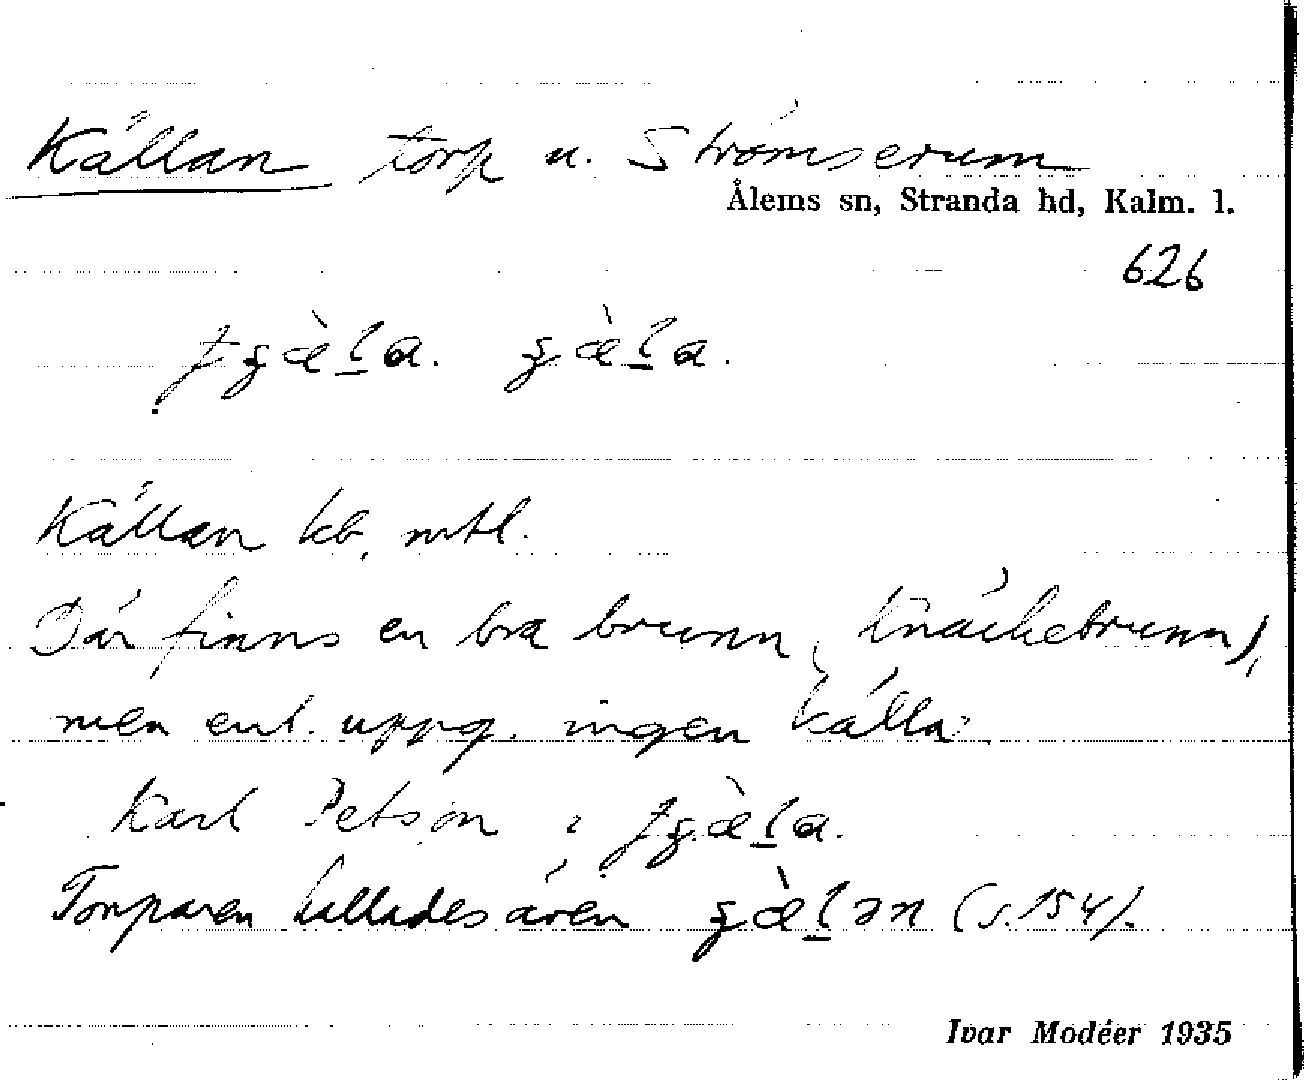 Källan torp u. Strömserum
Ålems sn, Stranda hd, Kalm. l.
626
Källan kb, mtl.
Där finns en bra brunn (Knäckebrunn),
men enl. uppg. ingen källa.
Karl Petson i
Torparen kallades även (s. 154).
Ivar Modéer 1935